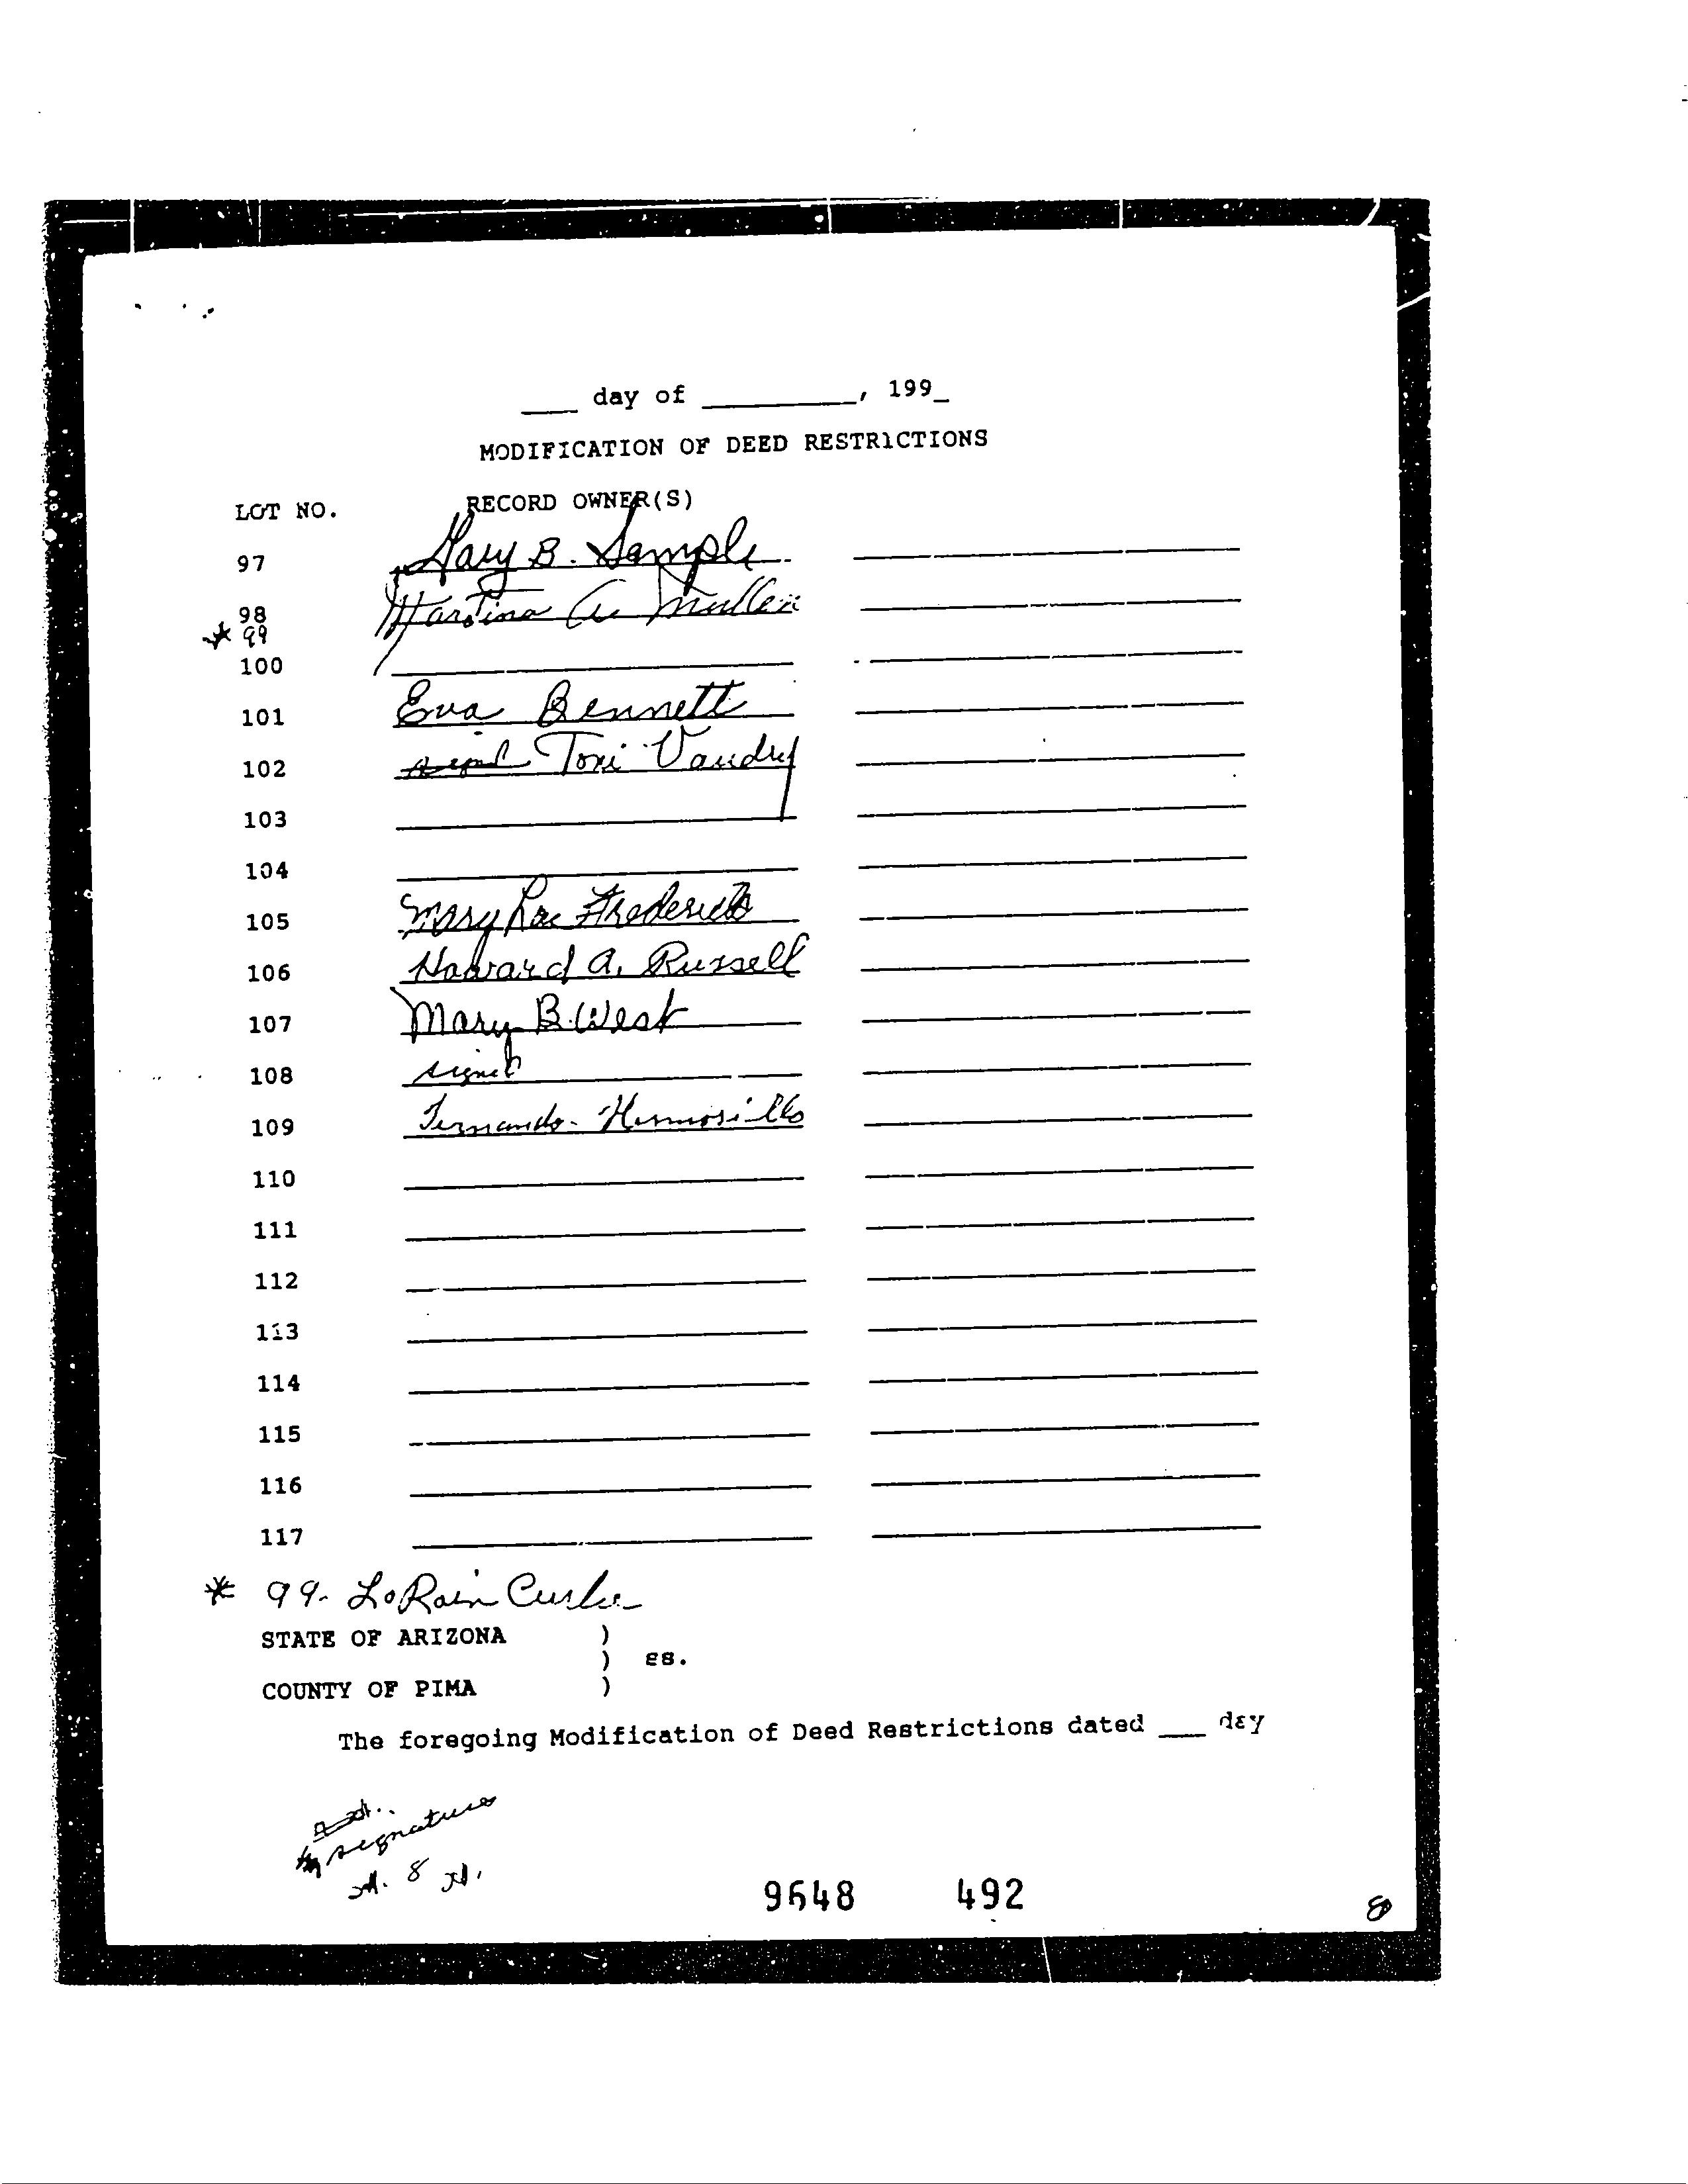 ___ day of _________, 199_
MODIFICATION OF DEED RESTRICTIONS
LOT NO. RECORD OWNER(S)
97 Mary B. Sample
98 Martina A. Mullen
* 99
100
101 Eva Bennett
102 signed Toni Vaudry
103
104
105 Mary Lou Fredericks
106 Howard A. Russell
107 Mary B. West
108 signed
109 Fernando Hermosillo
110
111
112
113
114
115
116
117
* 99- LoRain
STATE OF ARIZONA )
) ss.
COUNTY OF PIMA )
The foregoing Modification of Deed Restrictions dated ___ day
signatures
8
9648 492
8